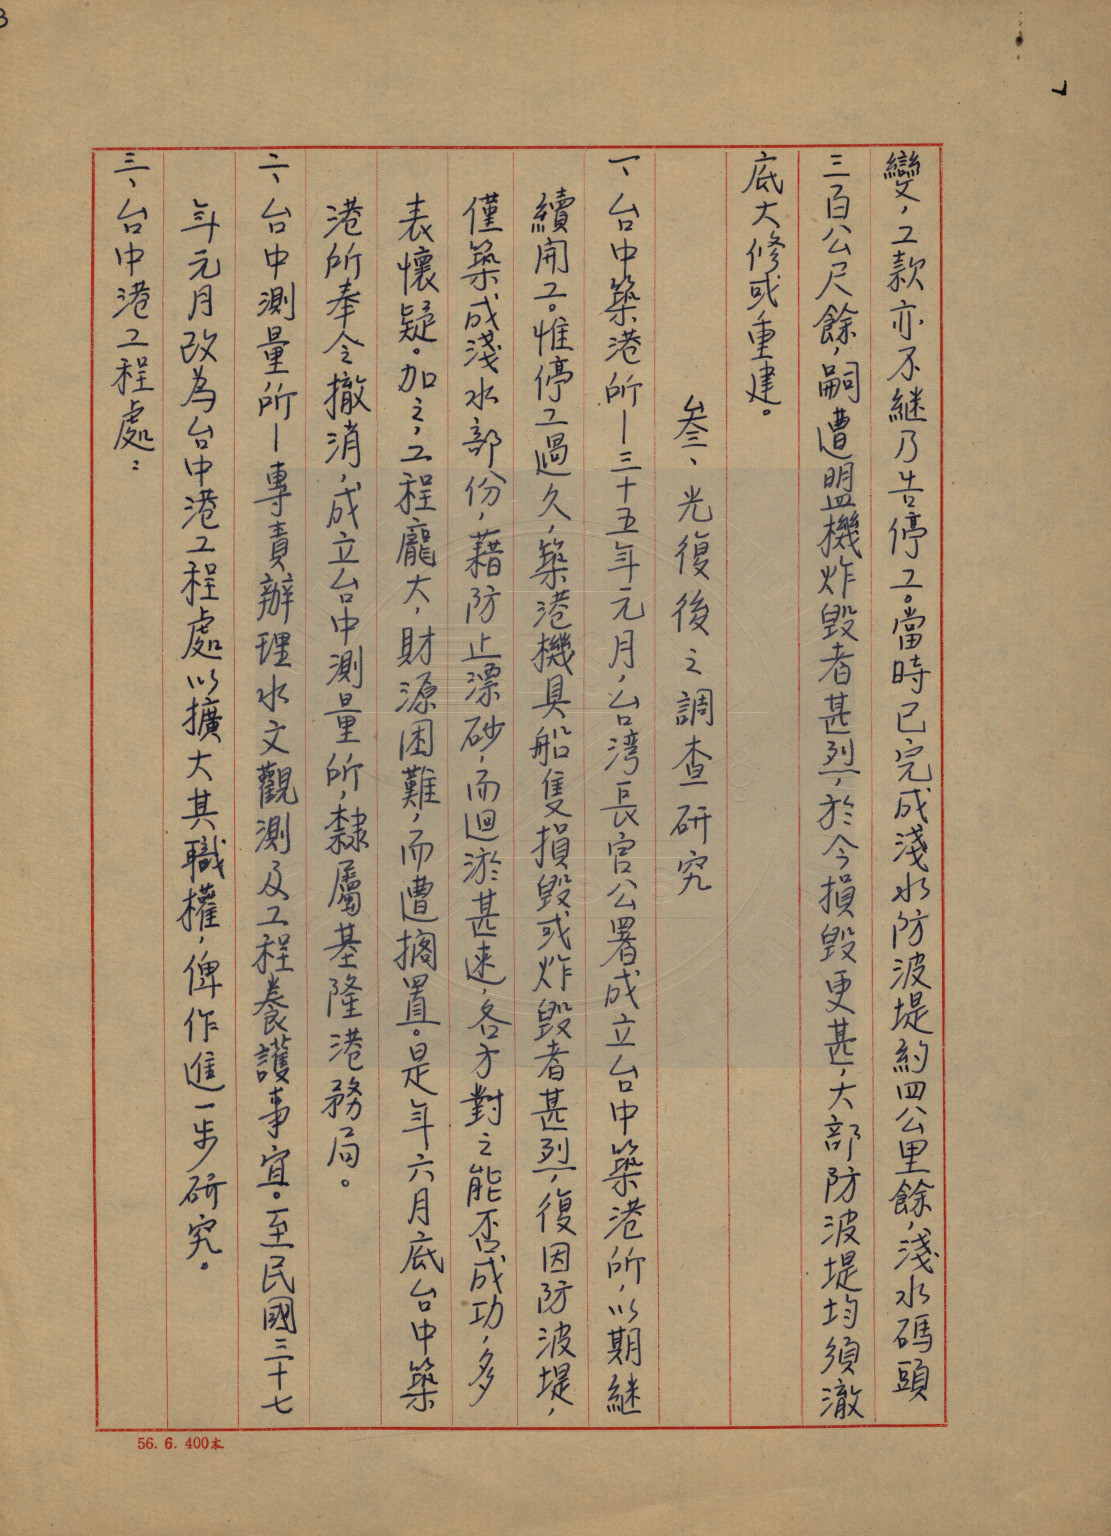 變，工款亦不継乃告停工。當時已完成淺水防波堤約四公里餘，淺水碼頭
三百公尺餘，嗣遭盟機炸毀者甚烈，於今損毀更甚，大部防波堤均須澈
底大修或重建。
叁、光復後之調查研究
一、台中築港所—三十五年元月，台湾長官公署成立台中築港所，以期継
續開工。惟停工過久，築港機具船隻損毀或炸毀者甚烈，復因防波堤，
僅築成淺水部份，藉防止漂砂，而迴淤甚速，各方對之能否成功，多
表懷疑。加之，工程龐大，財源困難，而遭擱置。是年六月底台中築
港所奉令撤消，成立台中測量所，隸屬基隆港務局。
二、台中測量所—專責辦理水文觀測及工程養護事宜。至民國三十七
年元月改為台中港工程處以擴大其職權，俾作進一步研究。
三、台中港工程處：
56. 6. 400本